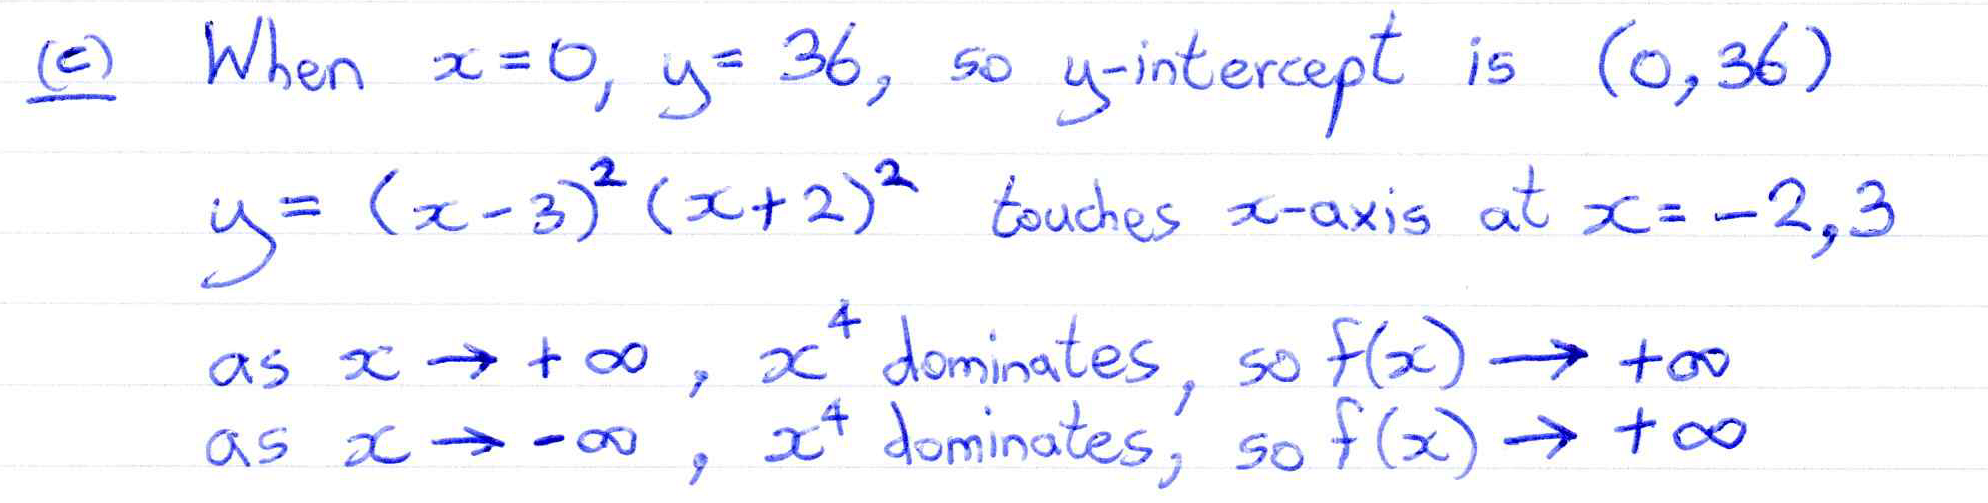 (c) When x=0, y=36, so y-intercept is (0,36)
y= (x-3)²(x+2)² touches x-axis at x= -2,3
as x → +∞, x⁴ dominates, so f(x) → +∞
as x → -∞, x⁴ dominates, so f(x) → +∞